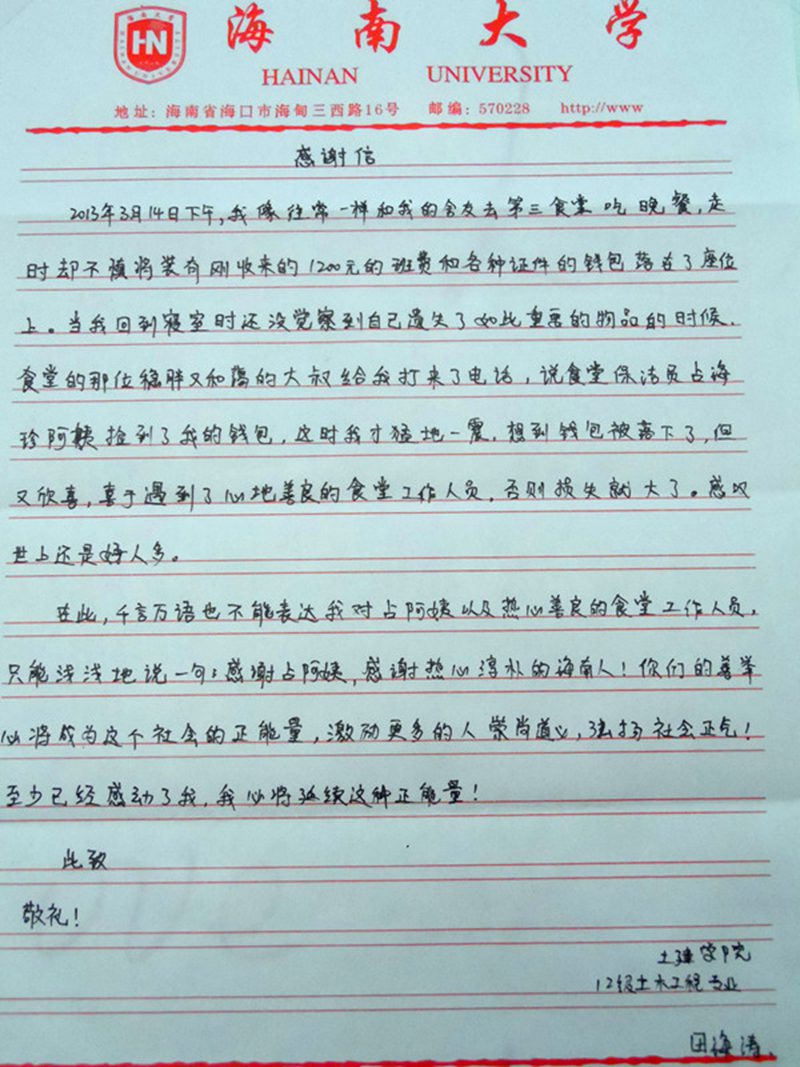 海南大学
HAINAN UNIVERSITY
HN
地址：海南省海口市海甸三西路16号 邮编：570228 http://www
感谢信
2013年3月14日下午，我像往常一样和我的舍友去第三食堂吃晚餐，走
时却不慎将装有刚收来的1200元的班费和各种证件的钱包落在了座位
上。当我回到寝室时还没觉察到自己遗失了如此重要的物品的时候，
食堂的那位稳胖又和蔼的大叔给我打来了电话，说食堂保洁员占海
珍阿姨捡到了我的钱包，这时我才猛地一震，想到钱包被落下了，但
又欣喜，喜于遇到了心地善良的食堂工作人员，否则损失就大了。感叹
世上还是好人多。
在此，千言万语也不能表达我对占阿姨以及热心善良的食堂工作人员，
只能浅浅地说一句：感谢占阿姨，感谢热心淳朴的海南人！你们的善举
必将成为这个社会的正能量，激励更多的人崇尚道义，弘扬社会正气！
至少已经感动了我，我必将延续这种正能量！
此致
敬礼！
土建学院
12级土木工程专业
田海涛